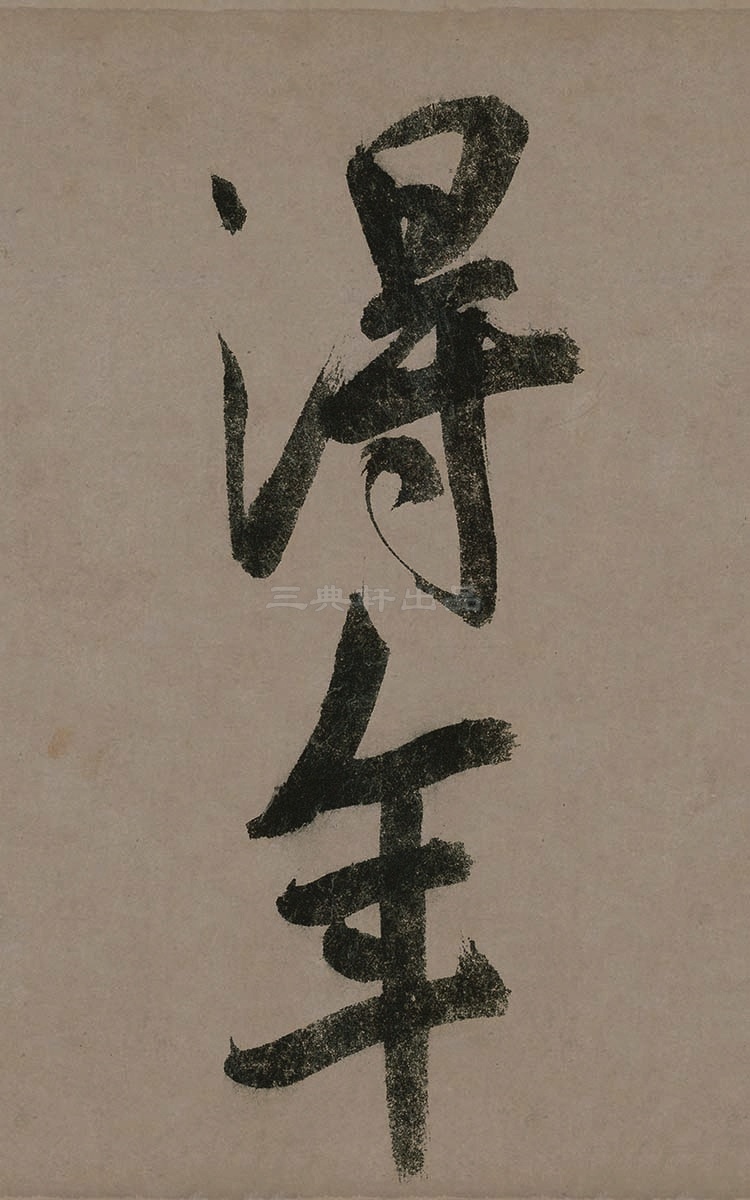 得年
三典轩出品